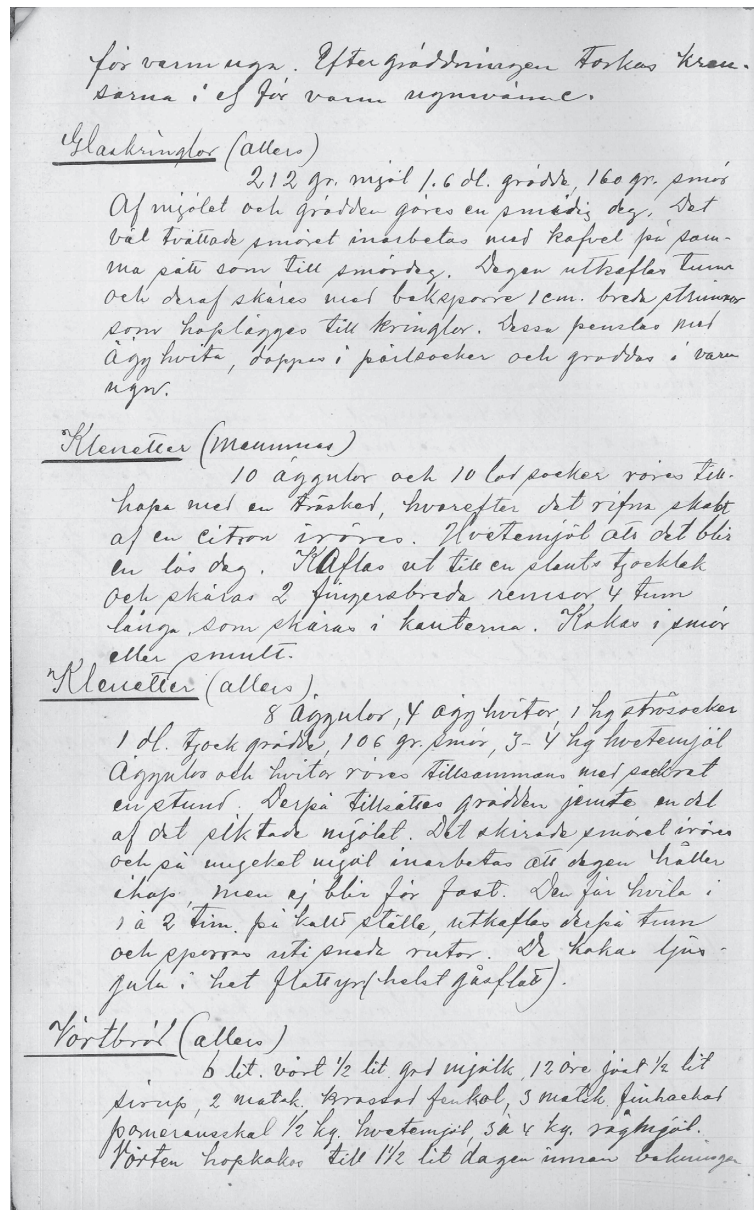 för varm ugn. Efter gräddningen torkas kran-
sarna i ej för varm ugnvärme.
Glaskringlor (allers)
212 gr. mjöl 1.6 dl. grädde, 160 gr. smör
Af mjölet och grädden göres en smidig deg. Det
väl tvättade smöret inarbetas med kafvel på sam-
ma sätt som till smördeg. Degen utkaflas tunn
och deraf skäres med baksporre 1 cm. breda strimmor
som hoplägges till kringlor. Dessa penslas med
ägghvita, doppas i pärlsocker och gräddas i varm
ugn.
Klenetter (Mammas)
10 äggulor och 10 lod socker röres till-
hopa med en träsked, hvarefter det rifna skalet
af en citron iröres. Hvetemjöl att det blir
en lös deg. Kaflas ut till en slants tjocklek
och skäras 2 fingersbreda remsor 4 tum
långa, som skäras i kanterna. Kokas i smör
eller smult.
Klenetter (allers)
8 äggulor, 4 ägghvitor, 1 hg strösocker
1 dl. tjock grädde, 106 gr. smör, 3-4 hg hvetemjöl
Äggulor och hvitor röres tillsammans med sockret
en stund. Derpå tillsättes grädden jemte en del
af det siktade mjölet. Det skirade smöret iröres
och så mycket mjöl inarbetas att degen håller
ihop, men ej blir för fast. Den får hvila i
1 à 2 tim. på kallt ställe, utkaflas derpå tunn
och sporras uti sneda rutor. De kokas ljus-
gula i het flottyr (helst gåsflott).
Vörtbröd (allers)
6 lit. vört 1/2 lit. god mjölk, 12 öre jäst 1/2 lit
sirup, 2 matsk. krossad fenkol, 3 matsk finhackad
pomeransskal 1/2 kg. hvetemjöl, 3 à 4 kg. rågmjöl.
Vörten hopkokas till 1 1/2 lit dagen innan bakningen